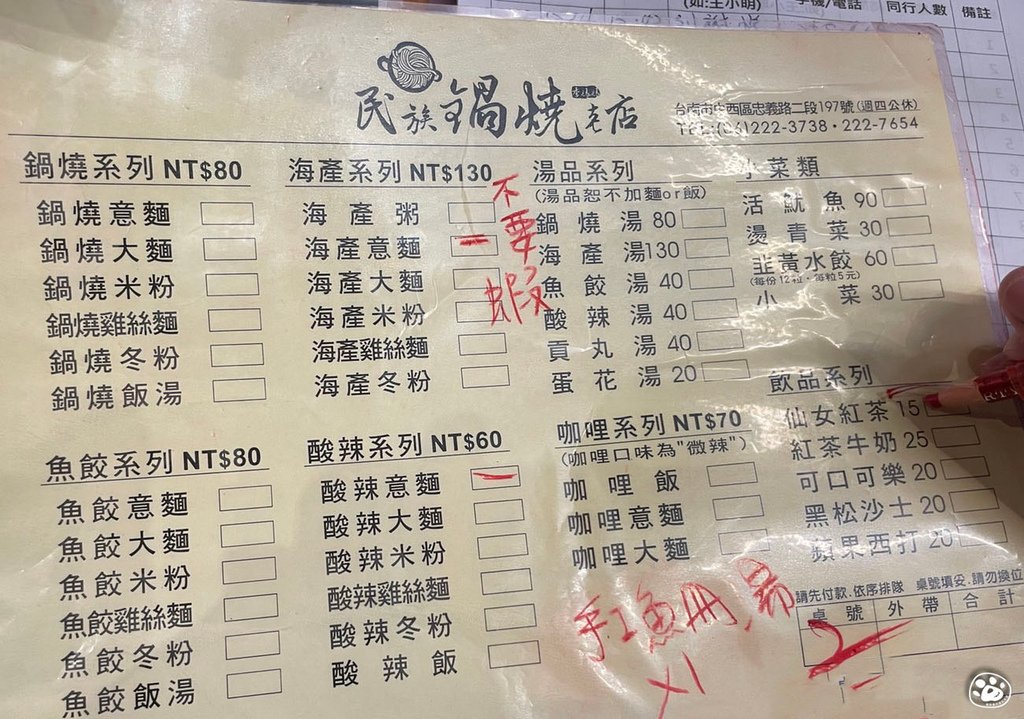 (如:王小明)
手機/電話
同行人數
備註
民族鍋燒老店
台南市中西區忠義路二段197號(週四公休)
TEL:(06)222-3738・222-7654
鍋燒系列 NT$80
鍋燒意麵
鍋燒大麵
鍋燒米粉
鍋燒雞絲麵
鍋燒冬粉
鍋燒飯湯
海產系列 NT$130
海產粥
海產意麵
海產大麵
海產米粉
海產雞絲麵
海產冬粉
不要蝦
湯品系列
(湯品恕不加麵or飯)
鍋燒湯 80
海產湯130
魚餃湯 40
酸辣湯 40
貢丸湯 40
蛋花湯 20
小菜類
活魷魚 90
燙青菜 30
韭黃水餃 60
(每份12粒,每粒5元)
小菜 30
魚餃系列 NT$80
魚餃意麵
魚餃大麵
魚餃米粉
魚餃雞絲麵
魚餃冬粉
魚餃飯湯
酸辣系列 NT$60
酸辣意麵
酸辣大麵
酸辣米粉
酸辣雞絲麵
酸辣冬粉
酸辣飯
咖哩系列 NT$70
(咖哩口味為"微辣")
咖哩飯
咖哩意麵
咖哩大麵
飲品系列
仙女紅茶 15
紅茶牛奶 25
可口可樂 20
黑松沙士 20
蘋果西打 20
請先付款.依序排隊 桌號填妥.請勿換位
桌號
外帶
合計
2
手工魚冊湯
x1